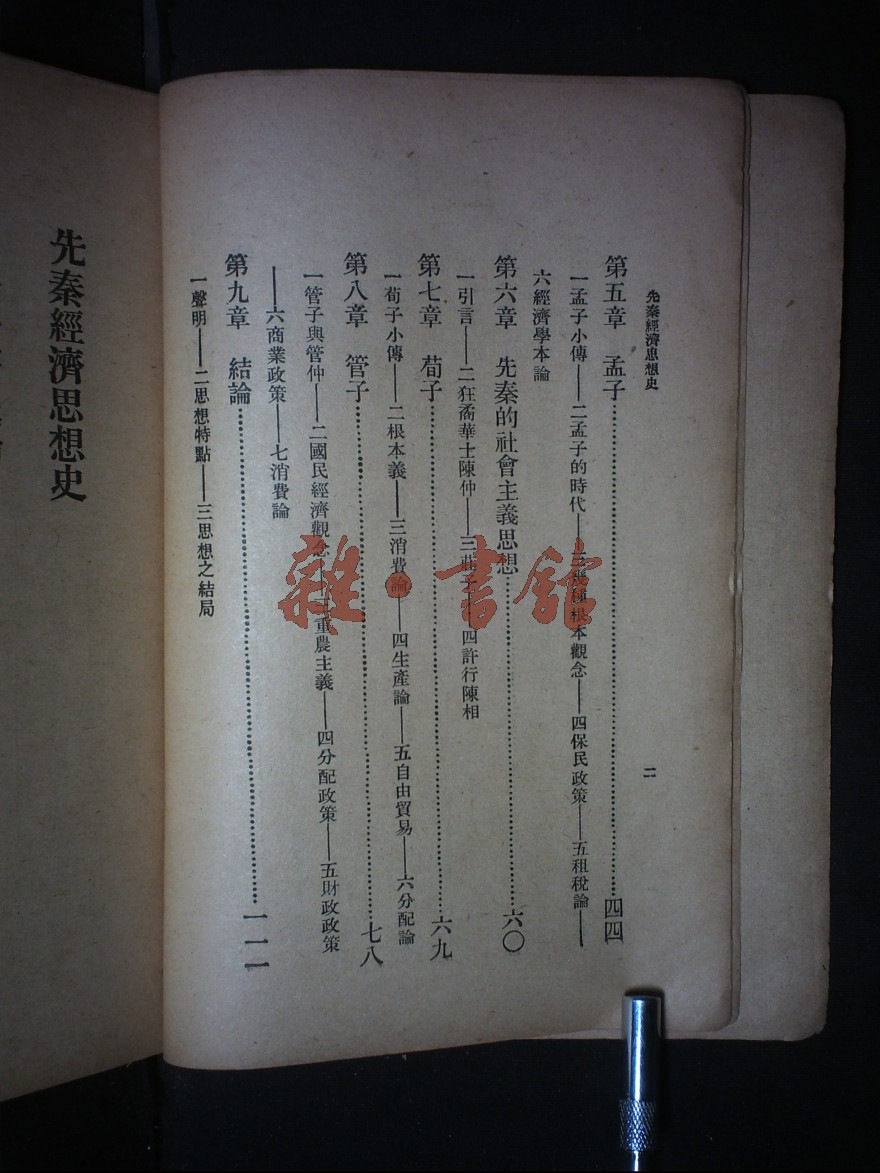 先秦經濟思想史
二
第五章 孟子…………四四
一孟子小傳——二孟子的時代——三幾種根本觀念——四保民政策——五租稅論——
六經濟學本論
第六章 先秦的社會主義思想…………六〇
一引言——二狂矞華士陳仲——三莊子——四許行陳相
第七章 荀子…………六九
一荀子小傳——二根本義——三消費論——四生產論——五自由貿易——六分配論
第八章 管子…………七八
一管子與管仲——二國民經濟觀念——三重農主義——四分配政策——五財政政策
——六商業政策——七消費論
第九章 結論…………一一一
一聲明——二思想特點——三思想之結局
先秦經濟思想史
雜·書館